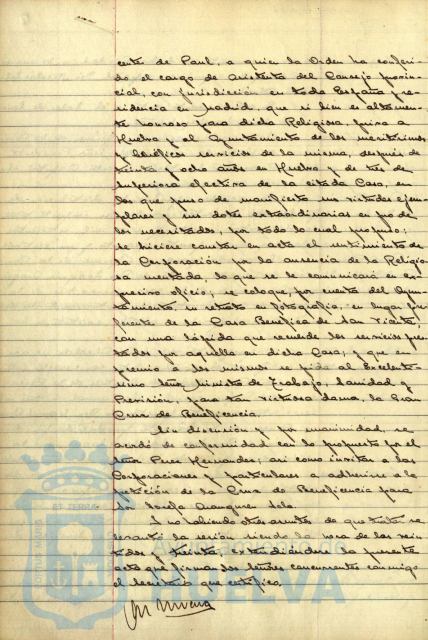 cente de Paul, a quien la Orden ha conferi-
do el cargo de Asistenta del Consejo provin-
cial, con jurisdicción en toda España y re-
sidencia en Madrid, que si bien es altamen-
te honroso para dicha Religiosa, priva a
Huelva y al Ayuntamiento de los meritísimos
y benéficos servicios de la misma, después de
treinta y ocho años en Huelva y de tres de
Superiora efectiva de la citada Casa, en
los que puso de manifiesto sus virtudes ejem-
plares y sus dotes extraordinarias en pro de
los necesitados, por todo lo cual propuso;
se hiciere constar en acta el sentimiento de
la Corporación por la ausencia de la Religio-
sa mentada, lo que se le comunicará en ex-
presivo oficio; se coloque, por cuenta del Ayun-
tamiento, su retrato en fotografía en lugar
preferente de la Casa Benéfica de San Vicente,
con una lápida que recuerde los servicios pres-
tados por aquella en dicha Casa; y que en
premio a los mismos se pida al Excelentí-
simo Señor Ministro de Trabajo, Sanidad y
Previsión, para tan virtuosa dama, la Gran
Cruz de Beneficencia.
Sin discusión y por unanimidad, se
acordó de conformidad con lo propuesto por el
Señor Perez Hernandez; así como invitar a las
Corporaciones y particulares a adherirse a la
petición de la Cruz de Beneficencia para
Sor Josefa
Y no habiendo otros asuntos de que tratar se
levantó la sesión siendo la hora de las vein-
tidos y treinta, extendiéndose la presente
acta que firman los Señores concurrentes conmigo
el Secretario que certifico.
HUELVA